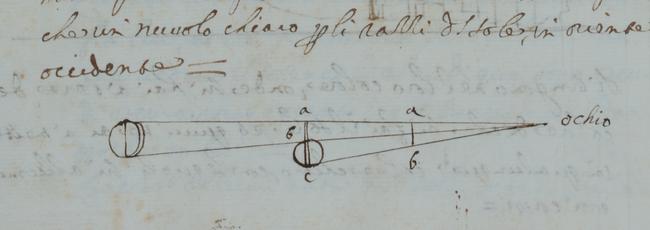 che un nuvolo chiaro p li razzi d sole, in oriente
occidente =
a a ochio
b
b
c